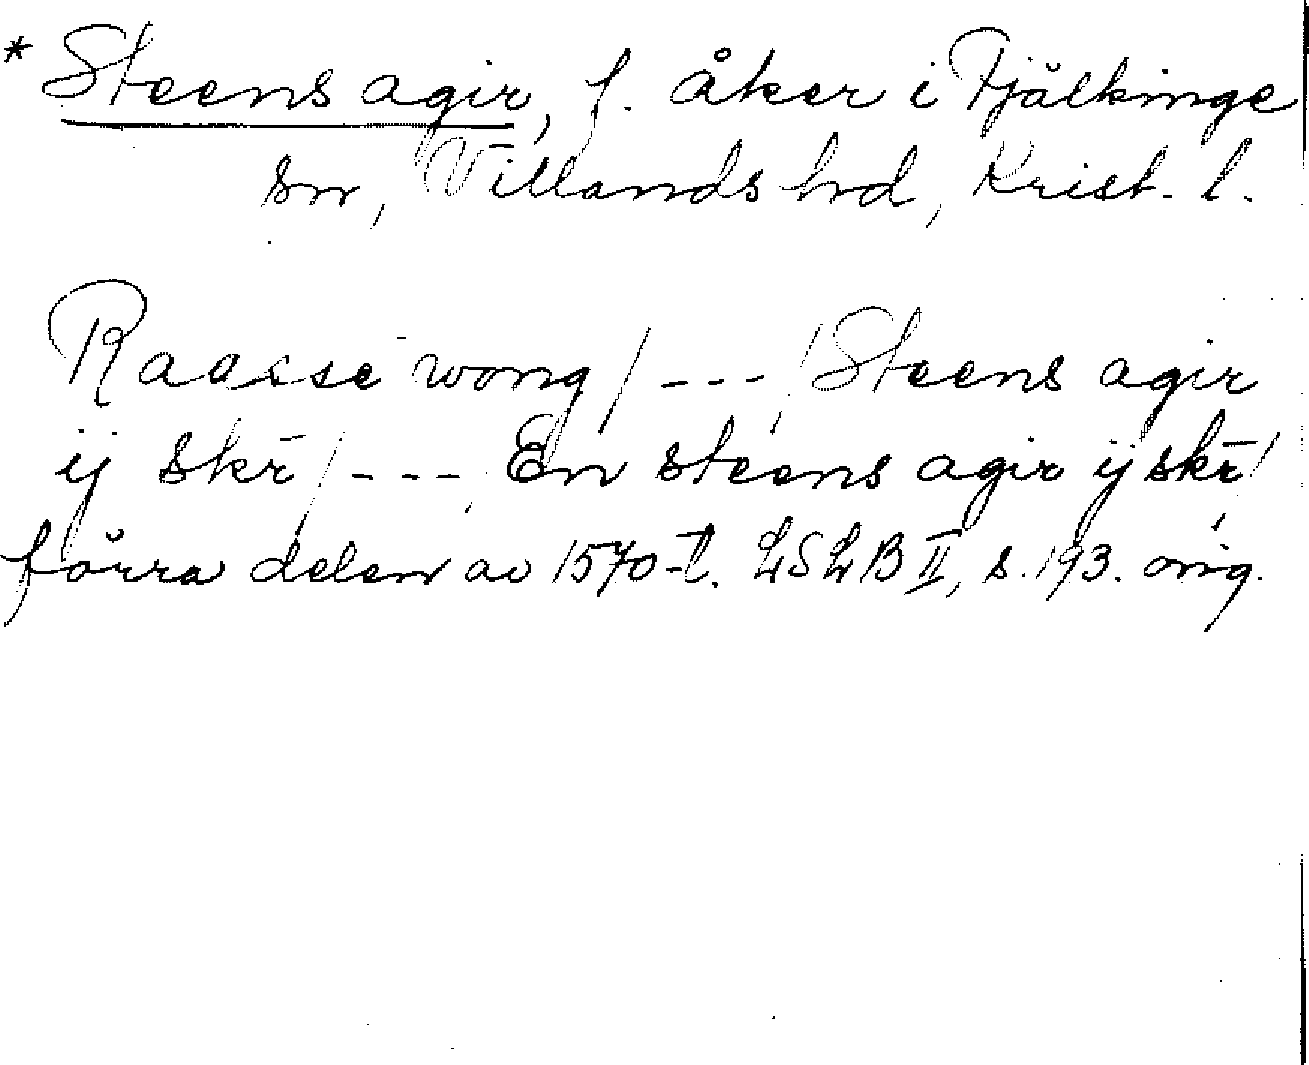 * Steens agir, f. åker i Fjälkinge
sn, Villands hd, Krist. l.
Raasse wong / - - - / Steens agir
ij skr̄ / - - - En steens agir ij skr̄ /
förra delen av 1570-t. LSLB II, s. 193. orig.